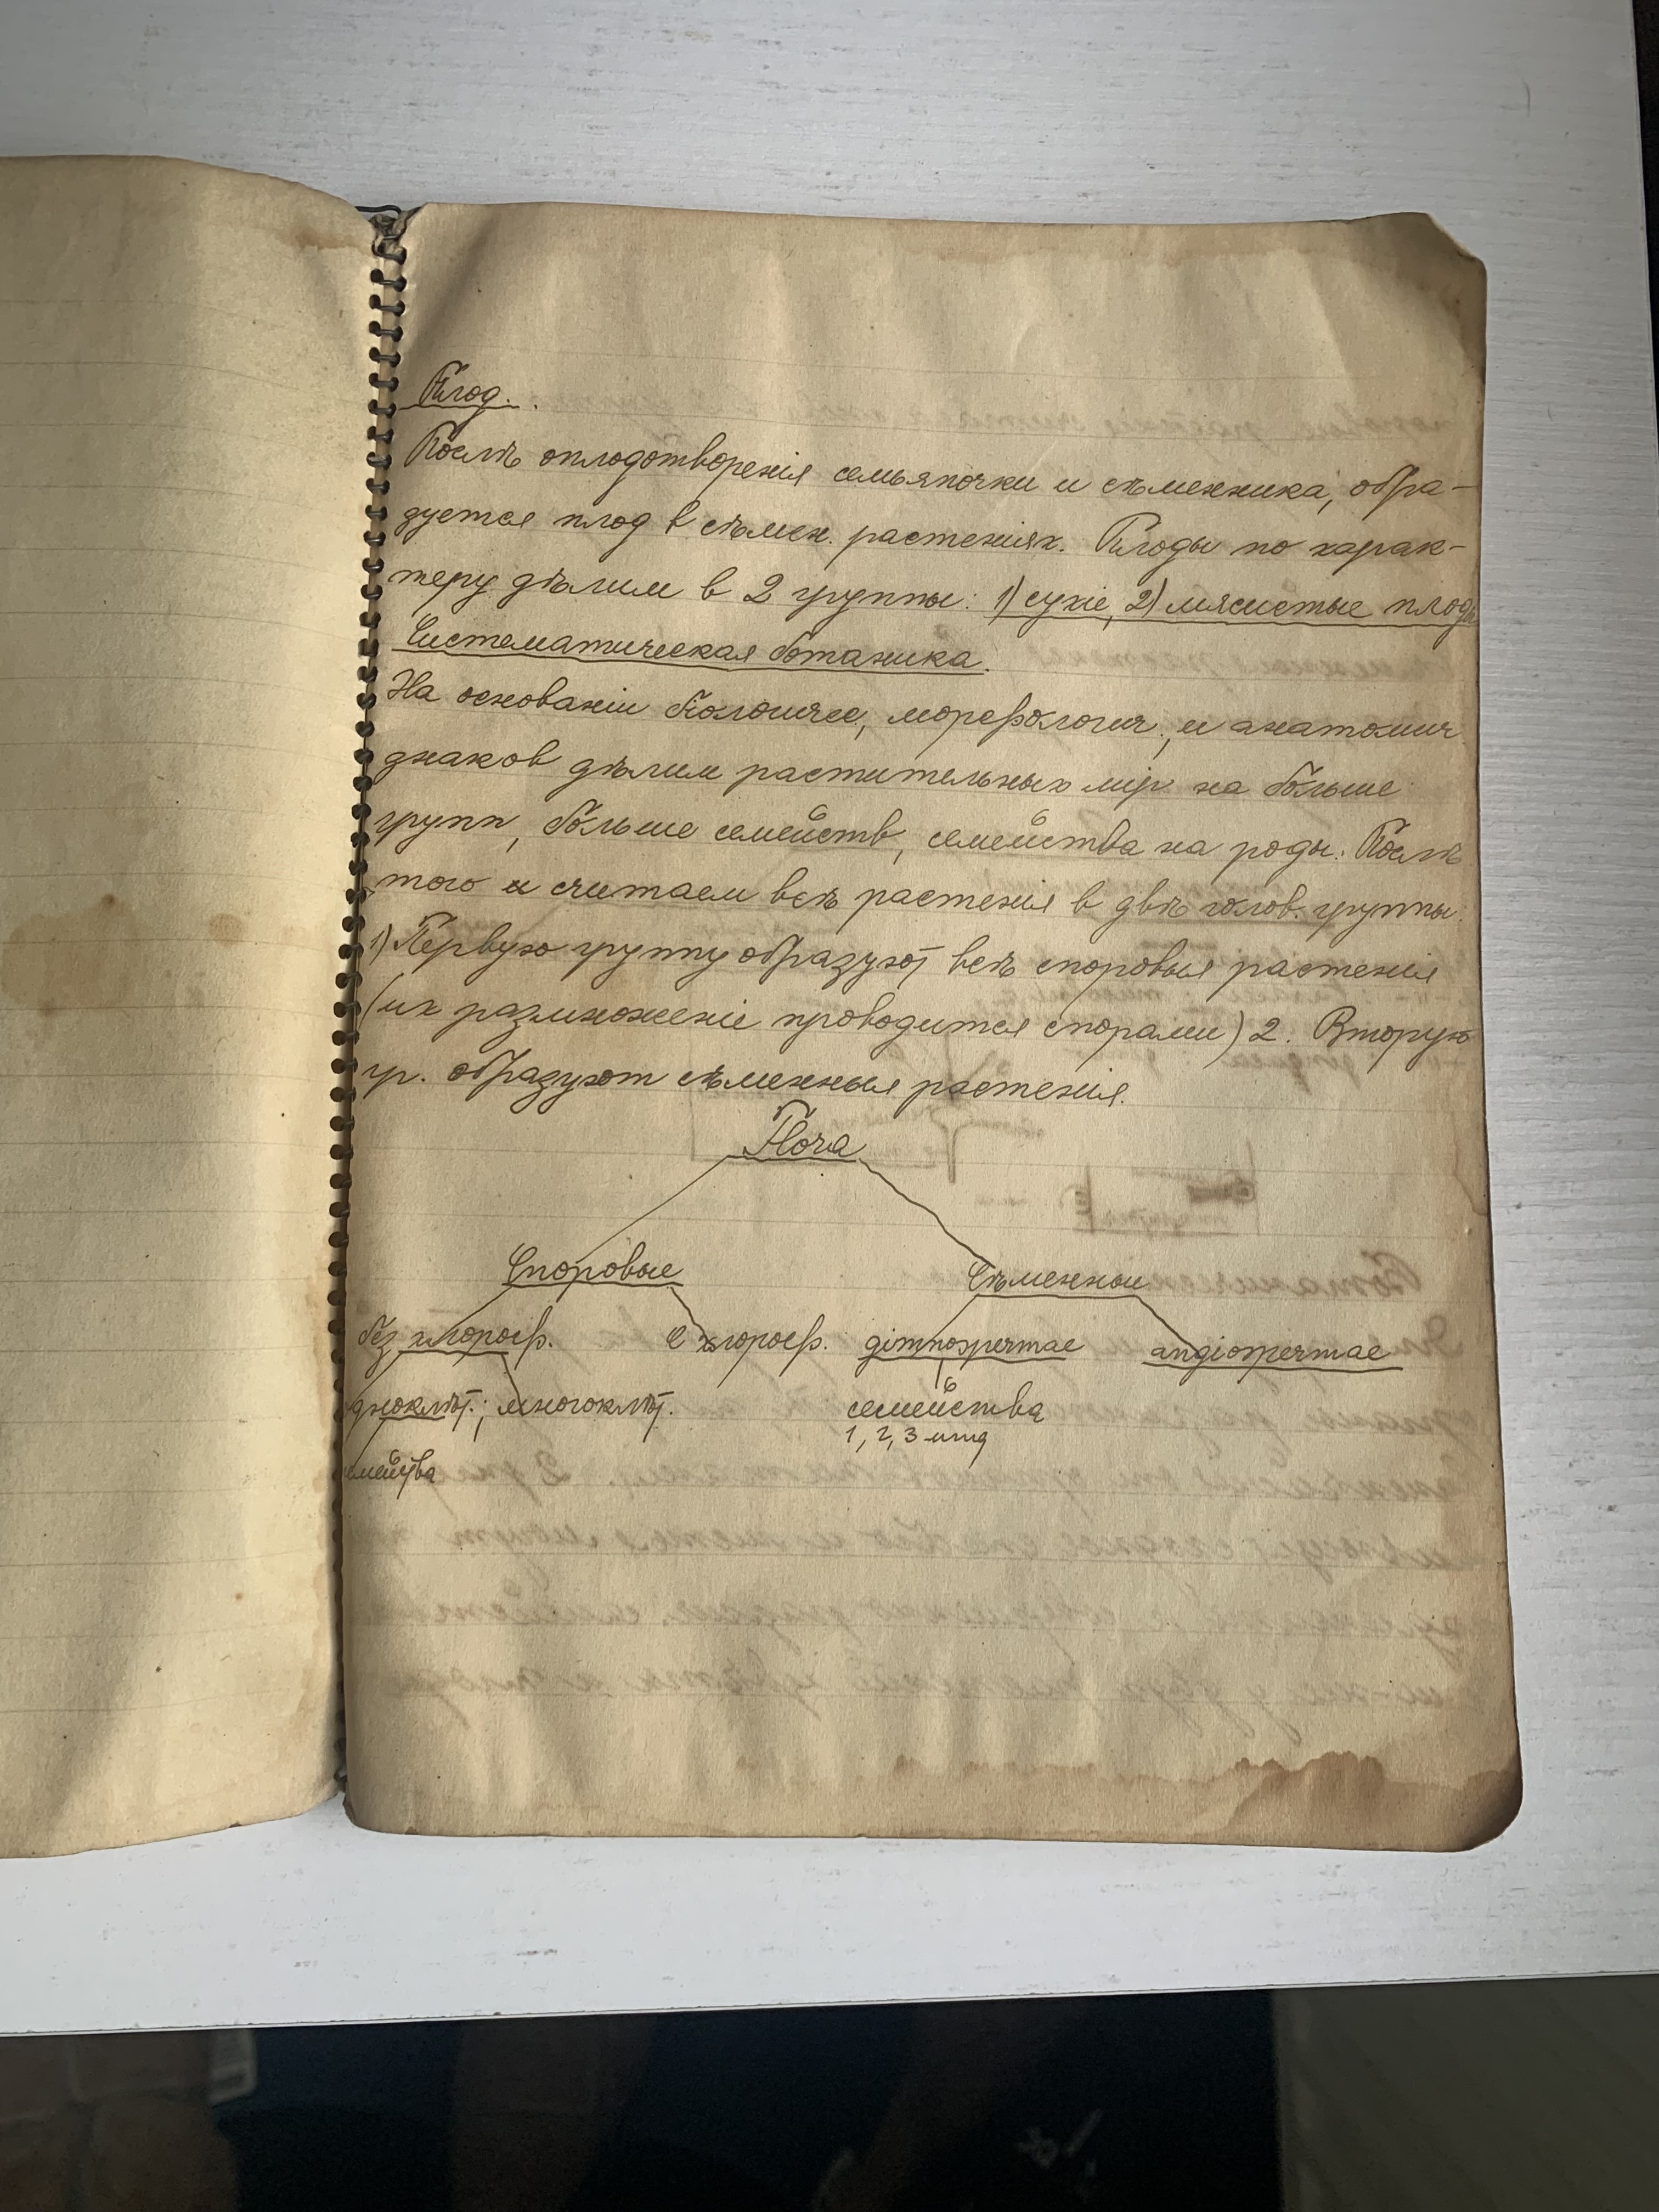 Плод.
Послѣ оплодотворенія семьяпочки и сѣменника, обра-
зуется плод в сѣмен. растеніях. Плоды по харак-
теру дѣлим в 2 группы: 1) сухіе, 2) мясистые плоды
Систематическая ботаника.
На основаніи біологичес, морефологич., и анатомич
знаков дѣлим растительных мір на больше
групп, больше семейств, семейства на роды. Послѣ
того и считаем всѣ растенія в двѣ голов. группы:
1) Первую группу образуют всѣ споровыя растенія
(их размноженіе проводится спорами) 2. Вторую
гр. образуют сѣменныя растенія.
Flora
Споровые Сѣменные
без хлороф. С хлороф. gimnospermae angiospermae
дноклѣт.; многоклѣт. семейства
1, 2, 3 итд
мейства